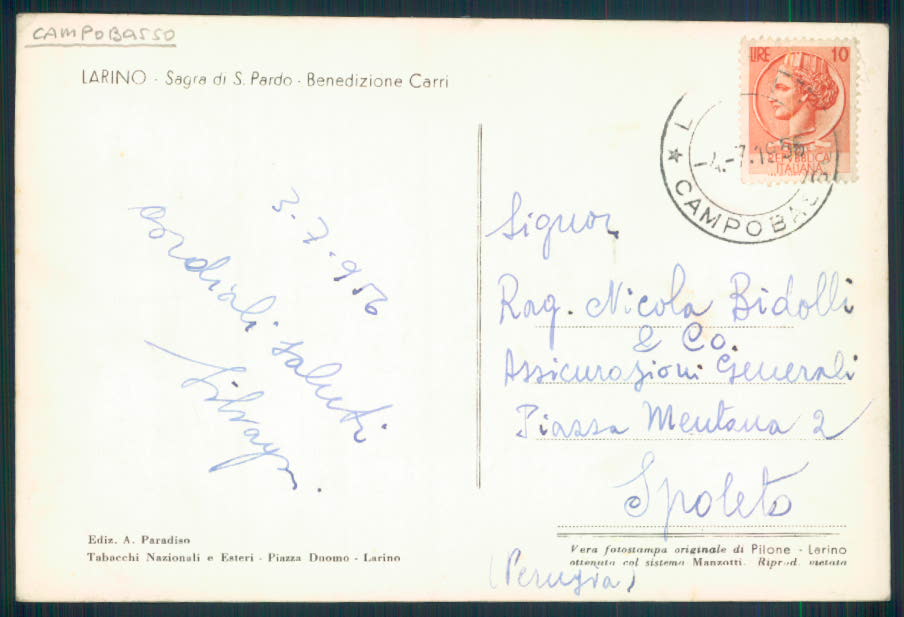 CAMPOBASSO
LARINO - Sagra di S. Pardo - Benedizione Carri
LIRE 10
REPVBBLICA
ITALIANA
L
-4.-7.1956
★ CAMPOBAS
3.7.956
Cordiali saluti
Signor
Rag. Nicola Bidolli
& Co.
Assicurazioni Generali
Piazza Mentana 2
Spoleto
(Perugia)
Ediz. A. Paradiso
Tabacchi Nazionali e Esteri - Piazza Duomo - Larino
Vera fotostampa originale di Pilone - Larino
ottenuta col sistema Manzotti. Riprod. vietata